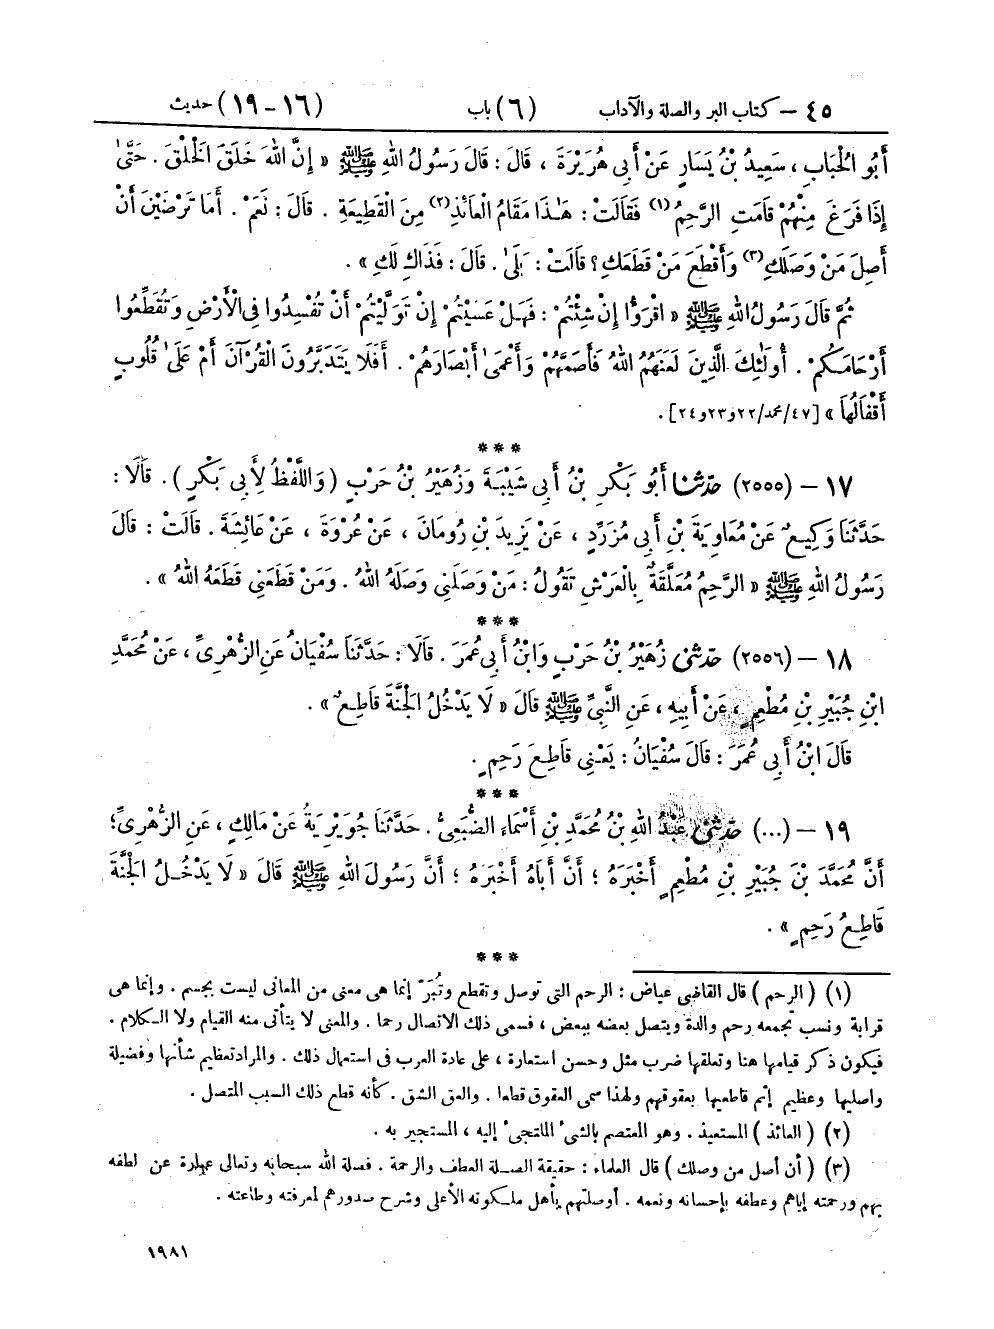 ٤٥ – كتاب البر والصلة والآداب (٦) باب (١٦ – ١٩) حديث
أَبُو الْحُبَابِ ، سَعِيدُ بْنُ يَسَارٍ عَنْ أَبِي هُرَيْرَةَ ، قَالَ : قَالَ رَسُولُ اللهِ ﷺ « إِنَّ اللهَ خَلَقَ الْخَلْقَ . حَتَّىٰ
إِذَا فَرَغَ مِنْهُمْ قَامَتِ الرَّحِمُ (١) فَقَالَتْ : هَـٰذَا مَقَامُ الْعَائِذِ (٢) مِنَ الْقَطِيعَةِ . قَالَ : نَعَمْ . أَمَا تَرْضَيْنَ أَنْ
أَصِلَ مَنْ وَصَلَكِ (٣) وَأَقْطَعَ مَنْ قَطَعَكِ ؟ قَالَتْ : بَلَىٰ . قَالَ : فَذَاكِ لَكِ » .
ثُمَّ قَالَ رَسُولُ اللهِ ﷺ « اقْرَؤُا إِنْ شِئْتُمْ : فَهَلْ عَسَيْتُمْ إِنْ تَوَلَّيْتُمْ أَنْ تُفْسِدُوا فِي الْأَرْضِ وَتُقَطِّعُوا
أَرْحَامَكُمْ . أُولَـٰئِكَ الَّذِينَ لَعَنَهُمُ اللهُ فَأَصَمَّهُمْ وَأَعْمَىٰ أَبْصَارَهُمْ . أَفَلَا يَتَدَبَّرُونَ الْقُرْآنَ أَمْ عَلَىٰ قُلُوبٍ
أَقْفَالُهَا » [٤٧/محمد/٢٢و٢٣و٢٤] .
* * *
١٧ – (٢٥٥٥) حَدَّثَنَا أَبُو بَكْرِ بْنُ أَبِي شَيْبَةَ وَزُهَيْرُ بْنُ حَرْبٍ ( وَاللَّفْظُ لِأَبِي بَكْرٍ ) . قَالَا :
حَدَّثَنَا وَكِيعٌ عَنْ مُعَاوِيَةَ بْنِ أَبِي مُزَرِّدٍ ، عَنْ يَزِيدَ بْنِ رُومَانَ ، عَنْ عُرْوَةَ ، عَنْ عَائِشَةَ . قَالَتْ : قَالَ
رَسُولُ اللهِ ﷺ « الرَّحِمُ مُعَلَّقَةٌ بِالْعَرْشِ تَقُولُ : مَنْ وَصَلَنِي وَصَلَهُ اللهُ . وَمَنْ قَطَعَنِي قَطَعَهُ اللهُ » .
* * *
١٨ – (٢٥٥٦) حَدَّثَنِي زُهَيْرُ بْنُ حَرْبٍ وَابْنُ أَبِي عُمَرَ . قَالَا : حَدَّثَنَا سُفْيَانُ عَنِ الزُّهْرِيِّ ، عَنْ مُحَمَّدِ
ابْنِ جُبَيْرِ بْنِ مُطْعِمٍ ، عَنْ أَبِيهِ ، عَنِ النَّبِيِّ ﷺ قَالَ « لَا يَدْخُلُ الْجَنَّةَ قَاطِعٌ » .
قَالَ ابْنُ أَبِي عُمَرَ : قَالَ سُفْيَانُ : يَعْنِي قَاطِعَ رَحِمٍ .
* * *
١٩ – (...) حَدَّثَنِي عَبْدُ اللهِ بْنُ مُحَمَّدِ بْنِ أَسْمَاءَ الضُّبَعِيُّ . حَدَّثَنَا جُوَيْرِيَةُ عَنْ مَالِكٍ ، عَنِ الزُّهْرِيِّ ؛
أَنَّ مُحَمَّدَ بْنَ جُبَيْرِ بْنِ مُطْعِمٍ أَخْبَرَهُ ؛ أَنَّ أَبَاهُ أَخْبَرَهُ ؛ أَنَّ رَسُولَ اللهِ ﷺ قَالَ « لَا يَدْخُلُ الْجَنَّةَ
قَاطِعُ رَحِمٍ » .
* * *
(١) ( الرحم ) قال القاضي عياض : الرحم التي توصل وتقطع وتُبَرّ إنما هي معنى من المعاني ليست بجسم . وإنما هي
قرابة ونسب تجمعه رحم والدة ويتصل بعضه ببعض ، فسمى ذلك الاتصال رحما . والمعنى لا يتأتى منه القيام ولا الكلام .
فيكون ذكر قيامها هنا وتعلقها ضرب مثل وحسن استعارة ، على عادة العرب في استعمال ذلك . والمراد تعظيم شأنها وفضيلة
واصليها وعظيم إثم قاطعيها بعقوقهم ولهذا سمى العقوق قطعا . والعق الشق . كأنه قطع ذلك السبب المتصل .
(٢) ( العائذ ) المستعيذ . وهو المعتصم بالشيء الملتجئ إليه ، المستجير به .
(٣) ( أن أصل من وصلك ) قال العلماء : حقيقة الصلة العطف والرحمة . فصلة الله سبحانه وتعالى عبارة عن لطفه
بهم ورحمته إياهم وعطفه بإحسانه ونعمه . أوصلتهم بأهل ملكوته الأعلى وشرح صدورهم لمعرفته وطاعته .
١٩٨١